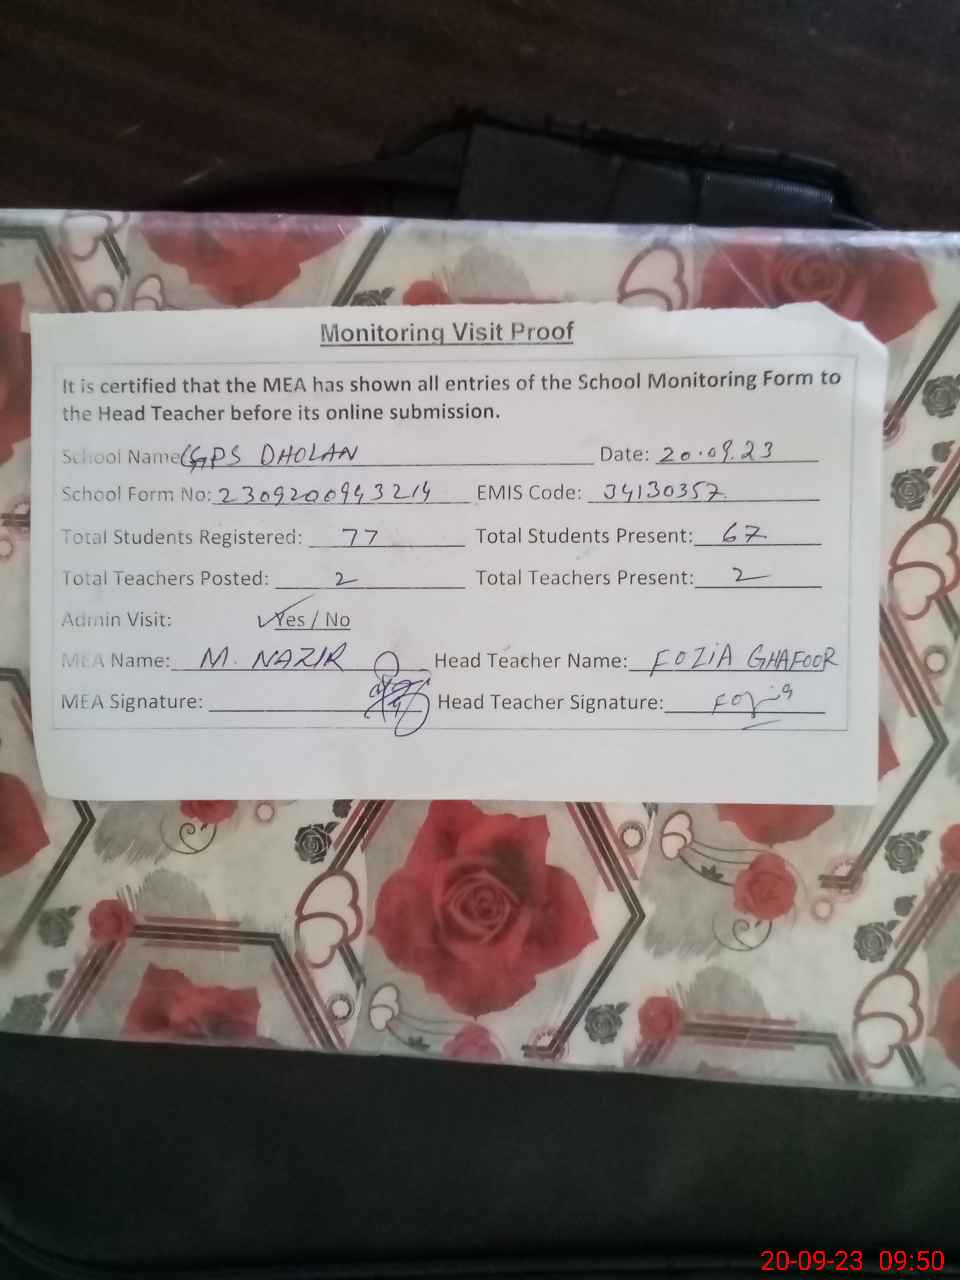 Monitoring Visit Proof
It is certified that the MEA has shown all entries of the School Monitoring Form to
the Head Teacher before its online submission.
School Name GPS DHOLAN Date: 20.09.23
School Form No: 230920094 3214 EMIS Code: 34130357
Total Students Registered: 77 Total Students Present: 67
Total Teachers Posted: 2 Total Teachers Present: 2
Admin Visit: Yes / No
MEA Name: M. NAZIR Head Teacher Name: FOZIA GHAFOOR
MEA Signature: Head Teacher Signature: Fozia
20-09-23 09:50